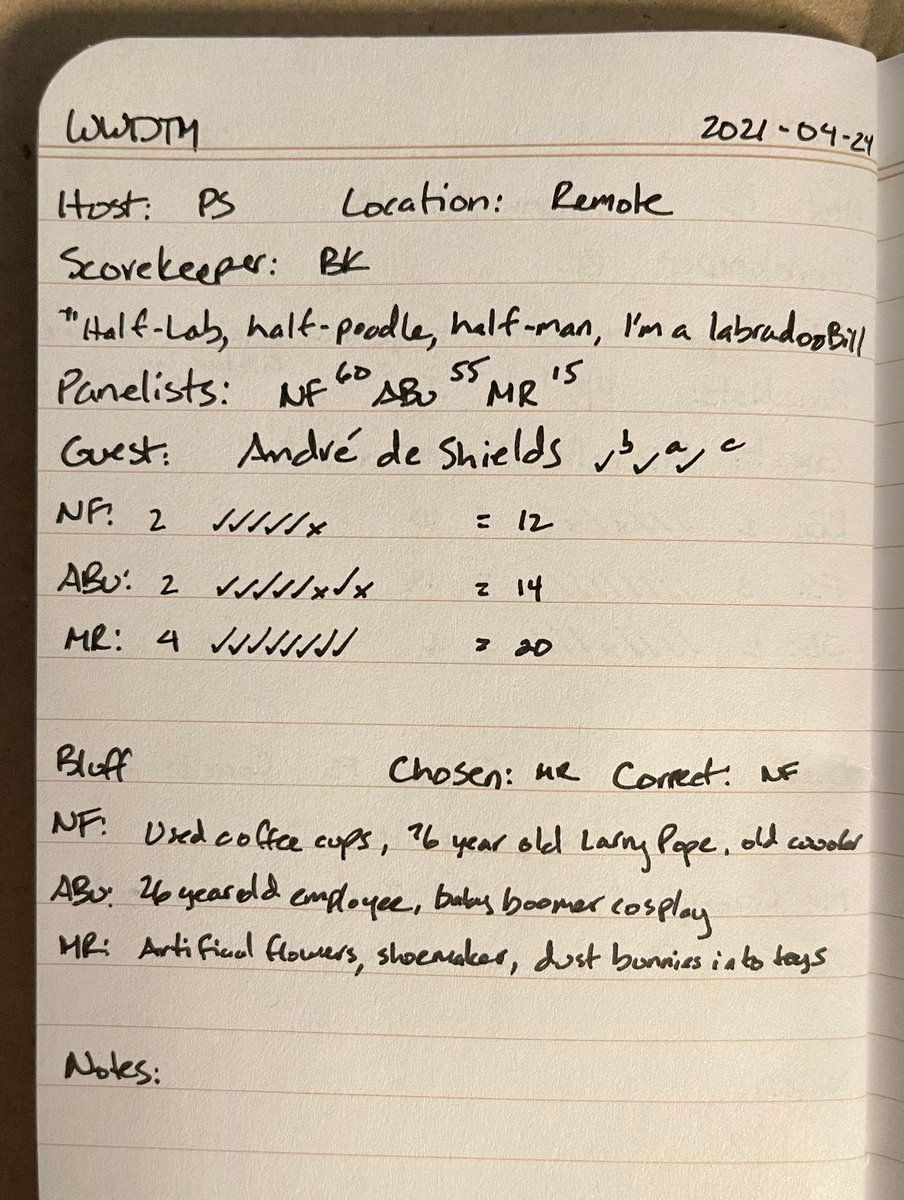 WWDTM 2021-04-24
Host: PS Location: Remote
Scorekeeper: BK
"Half-Lab, half-poodle, half-man, I'm a labradooBill
Panelists: NF 60 ABu 55 MR 15
Guest: André de Shields ✓b ✓a ✓c
NF: 2 ✓✓✓✓✓x = 12
ABu: 2 ✓✓✓✓✓x✓x = 14
MR: 4 ✓✓✓✓✓✓✓✓ = 20
Bluff Chosen: MR Correct: NF
NF: Used coffee cups, 76 year old Larry Pope, old
ABu: 26 year old employee, baby boomer cosplay
MR: Artifical flowers, shoemaker, dust bunnies into toys
Notes: